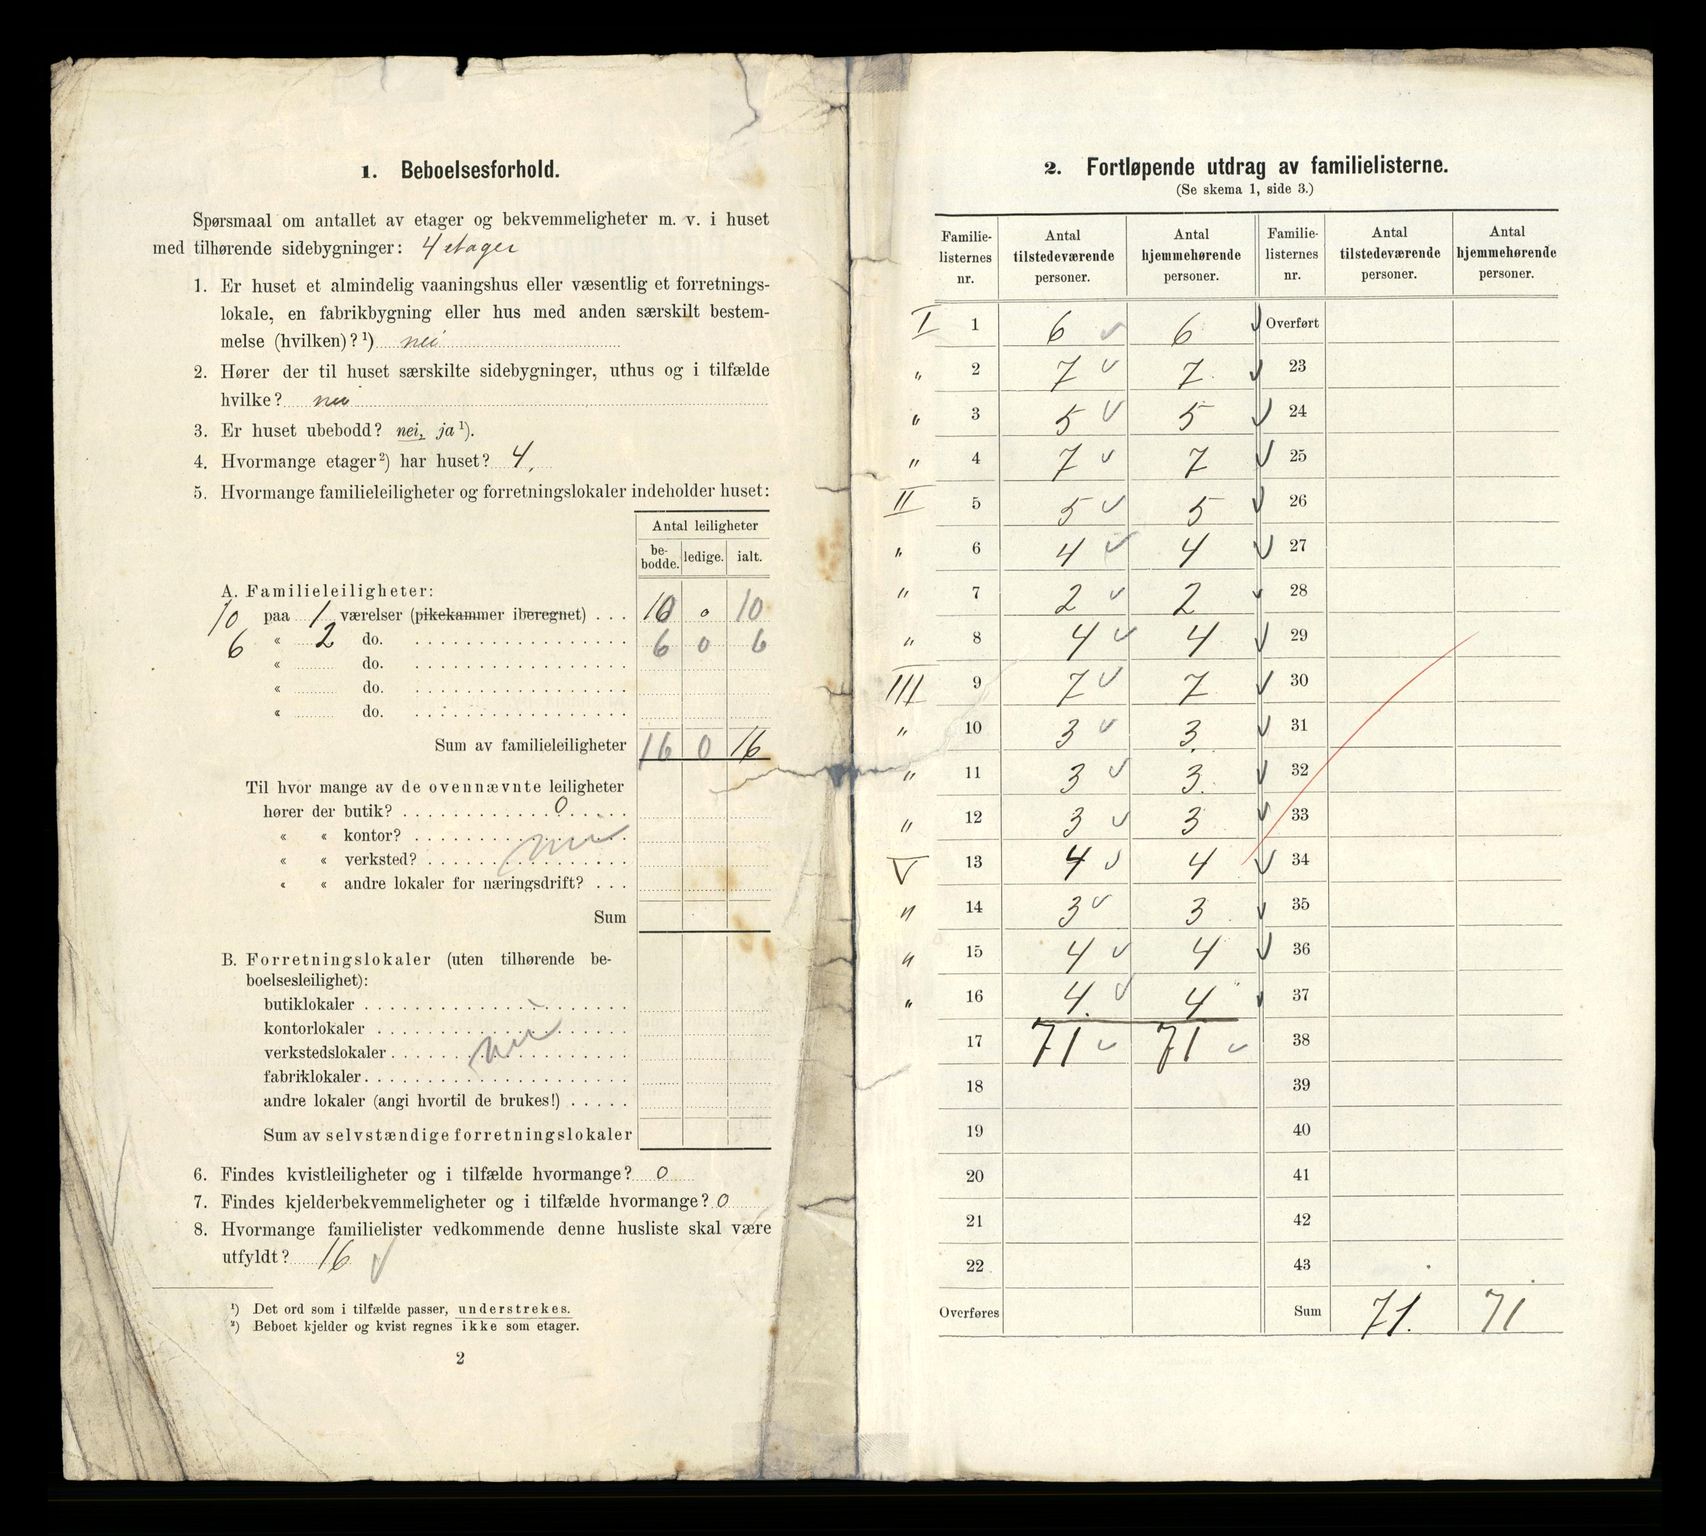 1. Beboelsesforhold.
Spørsmaal om antallet av etager og bekvemmeligheter m. v. i huset
med tilhørende sidebygninger: 4 etager
1. Er huset et almindelig vaaningshus eller væsentlig et forretnings-
lokale, en fabrikbygning eller hus med anden særskilt bestem-
melse (hvilken)?¹) nei
2. Hører der til huset særskilte sidebygninger, uthus og i tilfælde
hvilke? nei
3. Er huset ubebodd? nei, ja¹).
4. Hvormange etager²) har huset? 4.
5. Hvormange familieleiligheter og forretningslokaler indeholder huset:
Antal leiligheter
be-bodde. ledige. ialt.
A. Familieleiligheter:
10 paa 1 værelser (pikekammer iberegnet) . . . 10 0 10
6 « 2 do. 6 0 6
« do.
« do.
« do.
Sum av familieleiligheter 16 0 16
Til hvor mange av de ovennævnte leiligheter
hører der butik? 0
« « kontor?
« « verksted? nei
« « andre lokaler for næringsdrift? . . .
Sum
B. Forretningslokaler (uten tilhørende be-
boelsesleilighet):
butiklokaler
kontorlokaler
verkstedslokaler nei
fabriklokaler
andre lokaler (angi hvortil de brukes!)
Sum av selvstændige forretningslokaler
6. Findes kvistleiligheter og i tilfælde hvormange? 0
7. Findes kjelderbekvemmeligheter og i tilfælde hvormange? 0
8. Hvormange familielister vedkommende denne husliste skal være
utfyldt? 16 ✓
¹) Det ord som i tilfælde passer, understrekes.
²) Beboet kjelder og kvist regnes ikke som etager.
2
2. Fortløpende utdrag av familielisterne.
(Se skema 1, side 3.)
Familie-listernes nr. Antal tilstedeværende personer. Antal hjemmehørende personer. Familie-listernes nr. Antal tilstedeværende personer. Antal hjemmehørende personer.
I 1 6 ✓ 6 ✓ Overført
" 2 7 ✓ 7 ✓ 23
" 3 5 ✓ 5 ✓ 24
" 4 7 ✓ 7 ✓ 25
II 5 5 ✓ 5 ✓ 26
" 6 4 ✓ 4 ✓ 27
" 7 2 ✓ 2 ✓ 28
" 8 4 ✓ 4 ✓ 29
III 9 7 ✓ 7 ✓ 30
" 10 3 ✓ 3 ✓ 31
" 11 3 ✓ 3 ✓ 32
" 12 3 ✓ 3 ✓ 33
V 13 4 ✓ 4 ✓ 34
" 14 3 ✓ 3 ✓ 35
" 15 4 ✓ 4 ✓ 36
" 16 4 ✓ 4 ✓ 37
17 71 ✓ 71 ✓ 38
18 39
19 40
20 41
21 42
22 43
Overføres Sum 71. 71